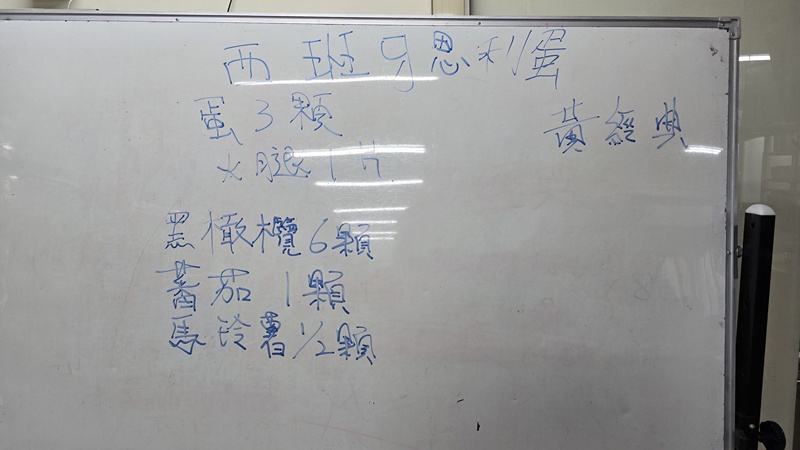 西班牙恩利蛋
蛋3顆
黃經典
火腿1片
黑橄欖6顆
蕃茄1顆
馬玲薯1/2顆